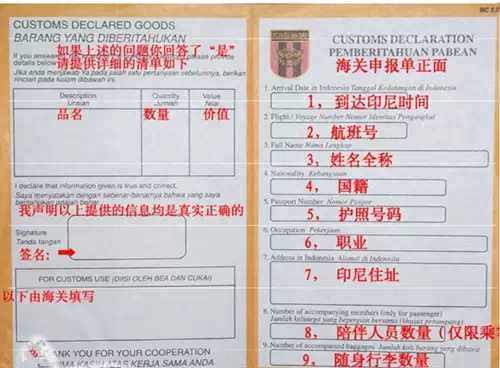 BC 2.2
CUSTOMS DECLARED GOODS
BARANG YANG DIBERITAHUKAN
如果上述的问题你回答了“是”
请提供详细的清单如下
If you answered
please provide
details below
Jika anda menjawab Ya pada salah satu pertanyaan sebelumnya, berikan
rincian pada kolom dibawah ini.
Description
Uraian
Quantity
Jumlah
Value
Nilai
品名 数量 价值
I declare that information given is true and correct.
Saya menyatakan dengan sebenar-benarnya bahwa yang saya
beritahukan adalah benar
我声明以上提供的信息均是真实正确的
Signature
Tanda tangan
签名:
FOR CUSTOMS USE (DIISI OLEH BEA DAN CUKAI)
以下由海关填写
THANK YOU FOR YOUR COOPERATION
TERIMA KASIH ATAS KERJA SAMA ANDA
CUSTOMS DECLARATION
PEMBERITAHUAN PABEAN
海关申报单正面
1. Arrival Date in Indonesia Tanggal Kedatangan di Indonesia
1，到达印尼时间
2. Flight / Voyage Number Nomor Identitas Pengangkut
2，航班号
3. Full Name Nama Lengkap
3，姓名全称
4. Nationality Kebangsaan
4，国籍
5. Passport Number Nomor Paspor
5，护照号码
6. Occupation Pekerjaan
6，职业
7. Address in Indonesia Alamat di Indonesia
7，印尼住址
8. Number of accompanying members (only for passenger)
Jumlah keluarga yang bepergian bersama (khusus penumpang)
8，陪伴人员数量（仅限乘客
9. Number of accompanied baggages Jumlah koli barang yang dibawa
9，随身行李数量